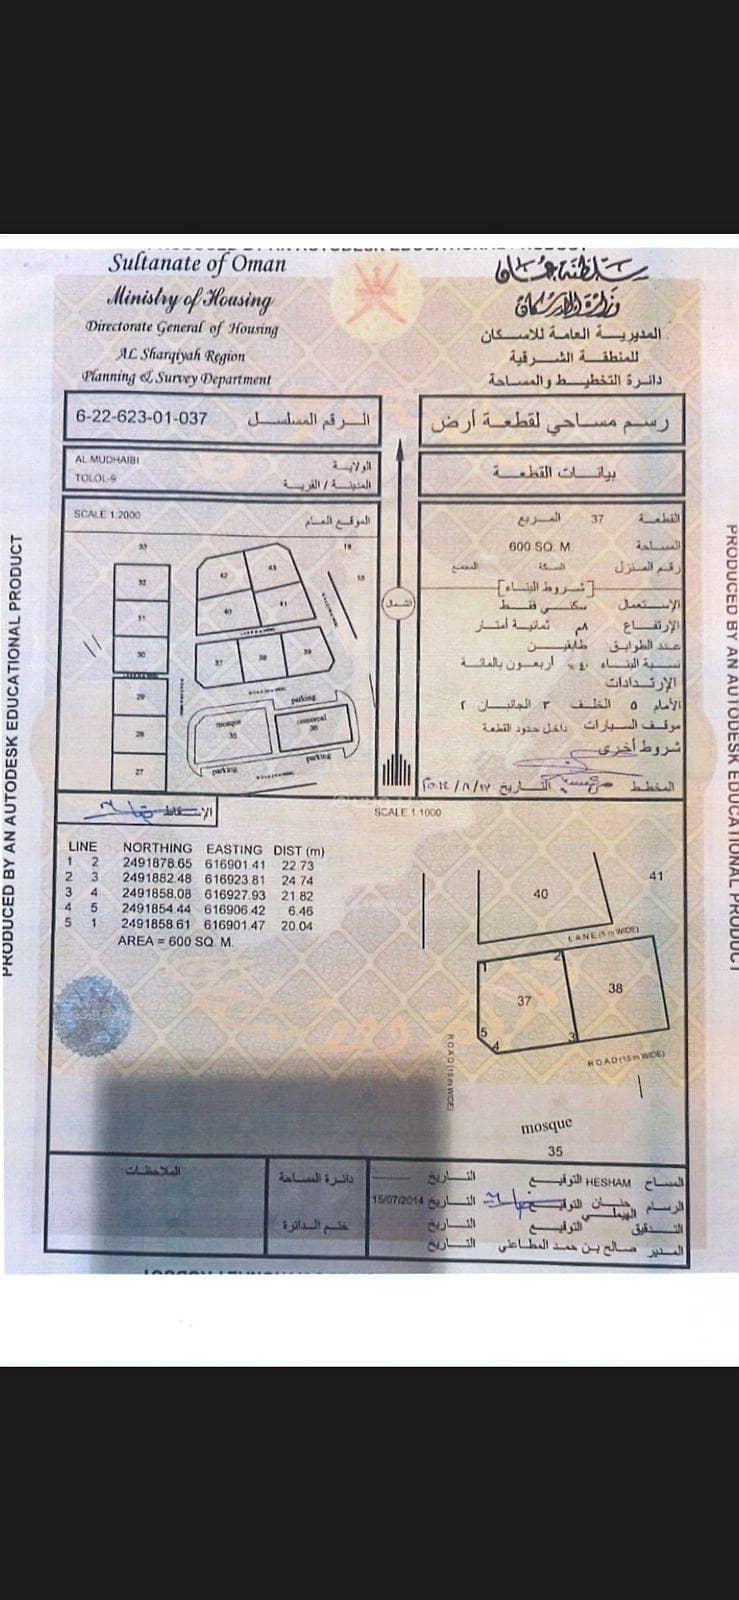 Sultanate of Oman
Ministry of Housing
Directorate General of Housing
AL Sharqiyah Region
Planning & Survey Department
سلطنة عمان
وزارة الإسكان
المديرية العامة للاسكان
للمنطقة الشرقية
دائرة التخطيط والمساحة
6-22-623-01-037 الرقم المسلسل
رسم مساحي لقطعة أرض
AL MUDHAIBI الولاية
TOLOL-9 المدينة / القرية
بيانات القطعة
SCALE 1:2000 الموقع العام
33
32
31
30
29
28
27
42
43
40
41
LANE
37
38
39
19
18
parking
mosque
35
comercal
36
parking
parking
الشمال
القطعة 37 المربع
المساحة 600 SQ. M.
رقم المنزل السكة المجمع
[شروط البناء]
الإستعمال سكني فقط
الإرتفاع ٨م ثمانية أمتار
عدد الطوابق طابقين
نسبة البناء ٤٠٪ أربعون بالمائة
الإرتدادات
الأمام ٥ الخلف ٣ الجانبان ٢
موقف السيارات داخل حدود القطعة
شروط أخرى
المخطط التاريخ
الإسقاط
SCALE 1:1000
LINE NORTHING EASTING DIST (m)
1 2 2491878.65 616901.41 22.73
2 3 2491882.48 616923.81 24.74
3 4 2491858.08 616927.93 21.82
4 5 2491854.44 616906.42 6.46
5 1 2491858.61 616901.47 20.04
AREA = 600 SQ. M.
40
41
LANE (5 m WIDE)
1
2
37
38
5
4
3
ROAD (15 m WIDE)
ROAD (15 m WIDE)
mosque
35
الملاحظات
دائرة المساحة
ختم الدائرة
المساح HESHAM التوقيع التاريخ
الرسام حنان الهيملي التوقيع التاريخ 15/07/2014
التدقيق التوقيع التاريخ
المدير صالح بن حمد المطاعني التاريخ
PRODUCED BY AN AUTODESK EDUCATIONAL PRODUCT
PRODUCED BY AN AUTODESK EDUCATIONAL PRODUCT